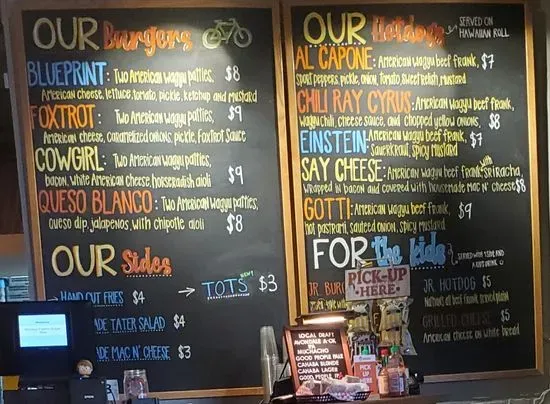 OUR Burgers
BLUEPRINT: TWO AMERICAN WAGYU PATTIES, $8
AMERICAN CHEESE, LETTUCE, TOMATO, PICKLE, KETCHUP AND MUSTARD
FOXTROT: TWO AMERICAN WAGYU PATTIES, $9
AMERICAN CHEESE, CARAMELIZED ONIONS, PICKLE, FOXTROT SAUCE
COWGIRL: TWO AMERICAN WAGYU PATTIES,
BACON, WHITE AMERICAN CHEESE, HORSERADISH AIOLI $9
QUESO BLANCO: TWO AMERICAN WAGYU PATTIES,
QUESO DIP, JALAPENOS, WITH CHIPOTLE AIOLI $8
OUR Sides
HAND CUT FRIES $4
→ TOTS NEW! $3
ADE TATER SALAD $4
ADE MAC N' CHEESE $3
OUR Hotdogs SERVED ON HAWAIIAN ROLL
AL CAPONE: AMERICAN WAGYU BEEF FRANK, $7
SPORT PEPPERS, PICKLE, ONION, TOMATO, SWEET RELISH, MUSTARD
CHILI RAY CYRUS: AMERICAN WAGYU BEEF FRANK,
WAGYU CHILI, CHEESE SAUCE, AND CHOPPED YELLOW ONIONS, $8
EINSTEIN: AMERICAN WAGYU BEEF FRANK,
SAUERKRAUT, SPICY MUSTARD $7
SAY CHEESE: AMERICAN WAGYU BEEF FRANK WITH SRIRACHA,
WRAPPED IN BACON AND COVERED WITH HOUSEMADE MAC N' CHEESE $8
GOTTI: AMERICAN WAGYU BEEF FRANK, $9
HOT PASTRAMI, SAUTEED ONION, SPICY MUSTARD
FOR the kids SERVED WITH 1 SIDE AND
JR. BURG
JR HOTDOG $5
ALL BEEF FRANK, SERVED PLAIN
GRILLED CHEESE $5
AMERICAN CHEESE ON WHITE BREAD
PICK-UP
HERE
LOCAL DRAFT
AVONDALE A-OK
IPA
MUCHACHO
GOOD PEOPLE PALE
CAHABA BLONDE
CAHABA LAGER
GOOD PEOPLE IPA
PICK UP
HERE